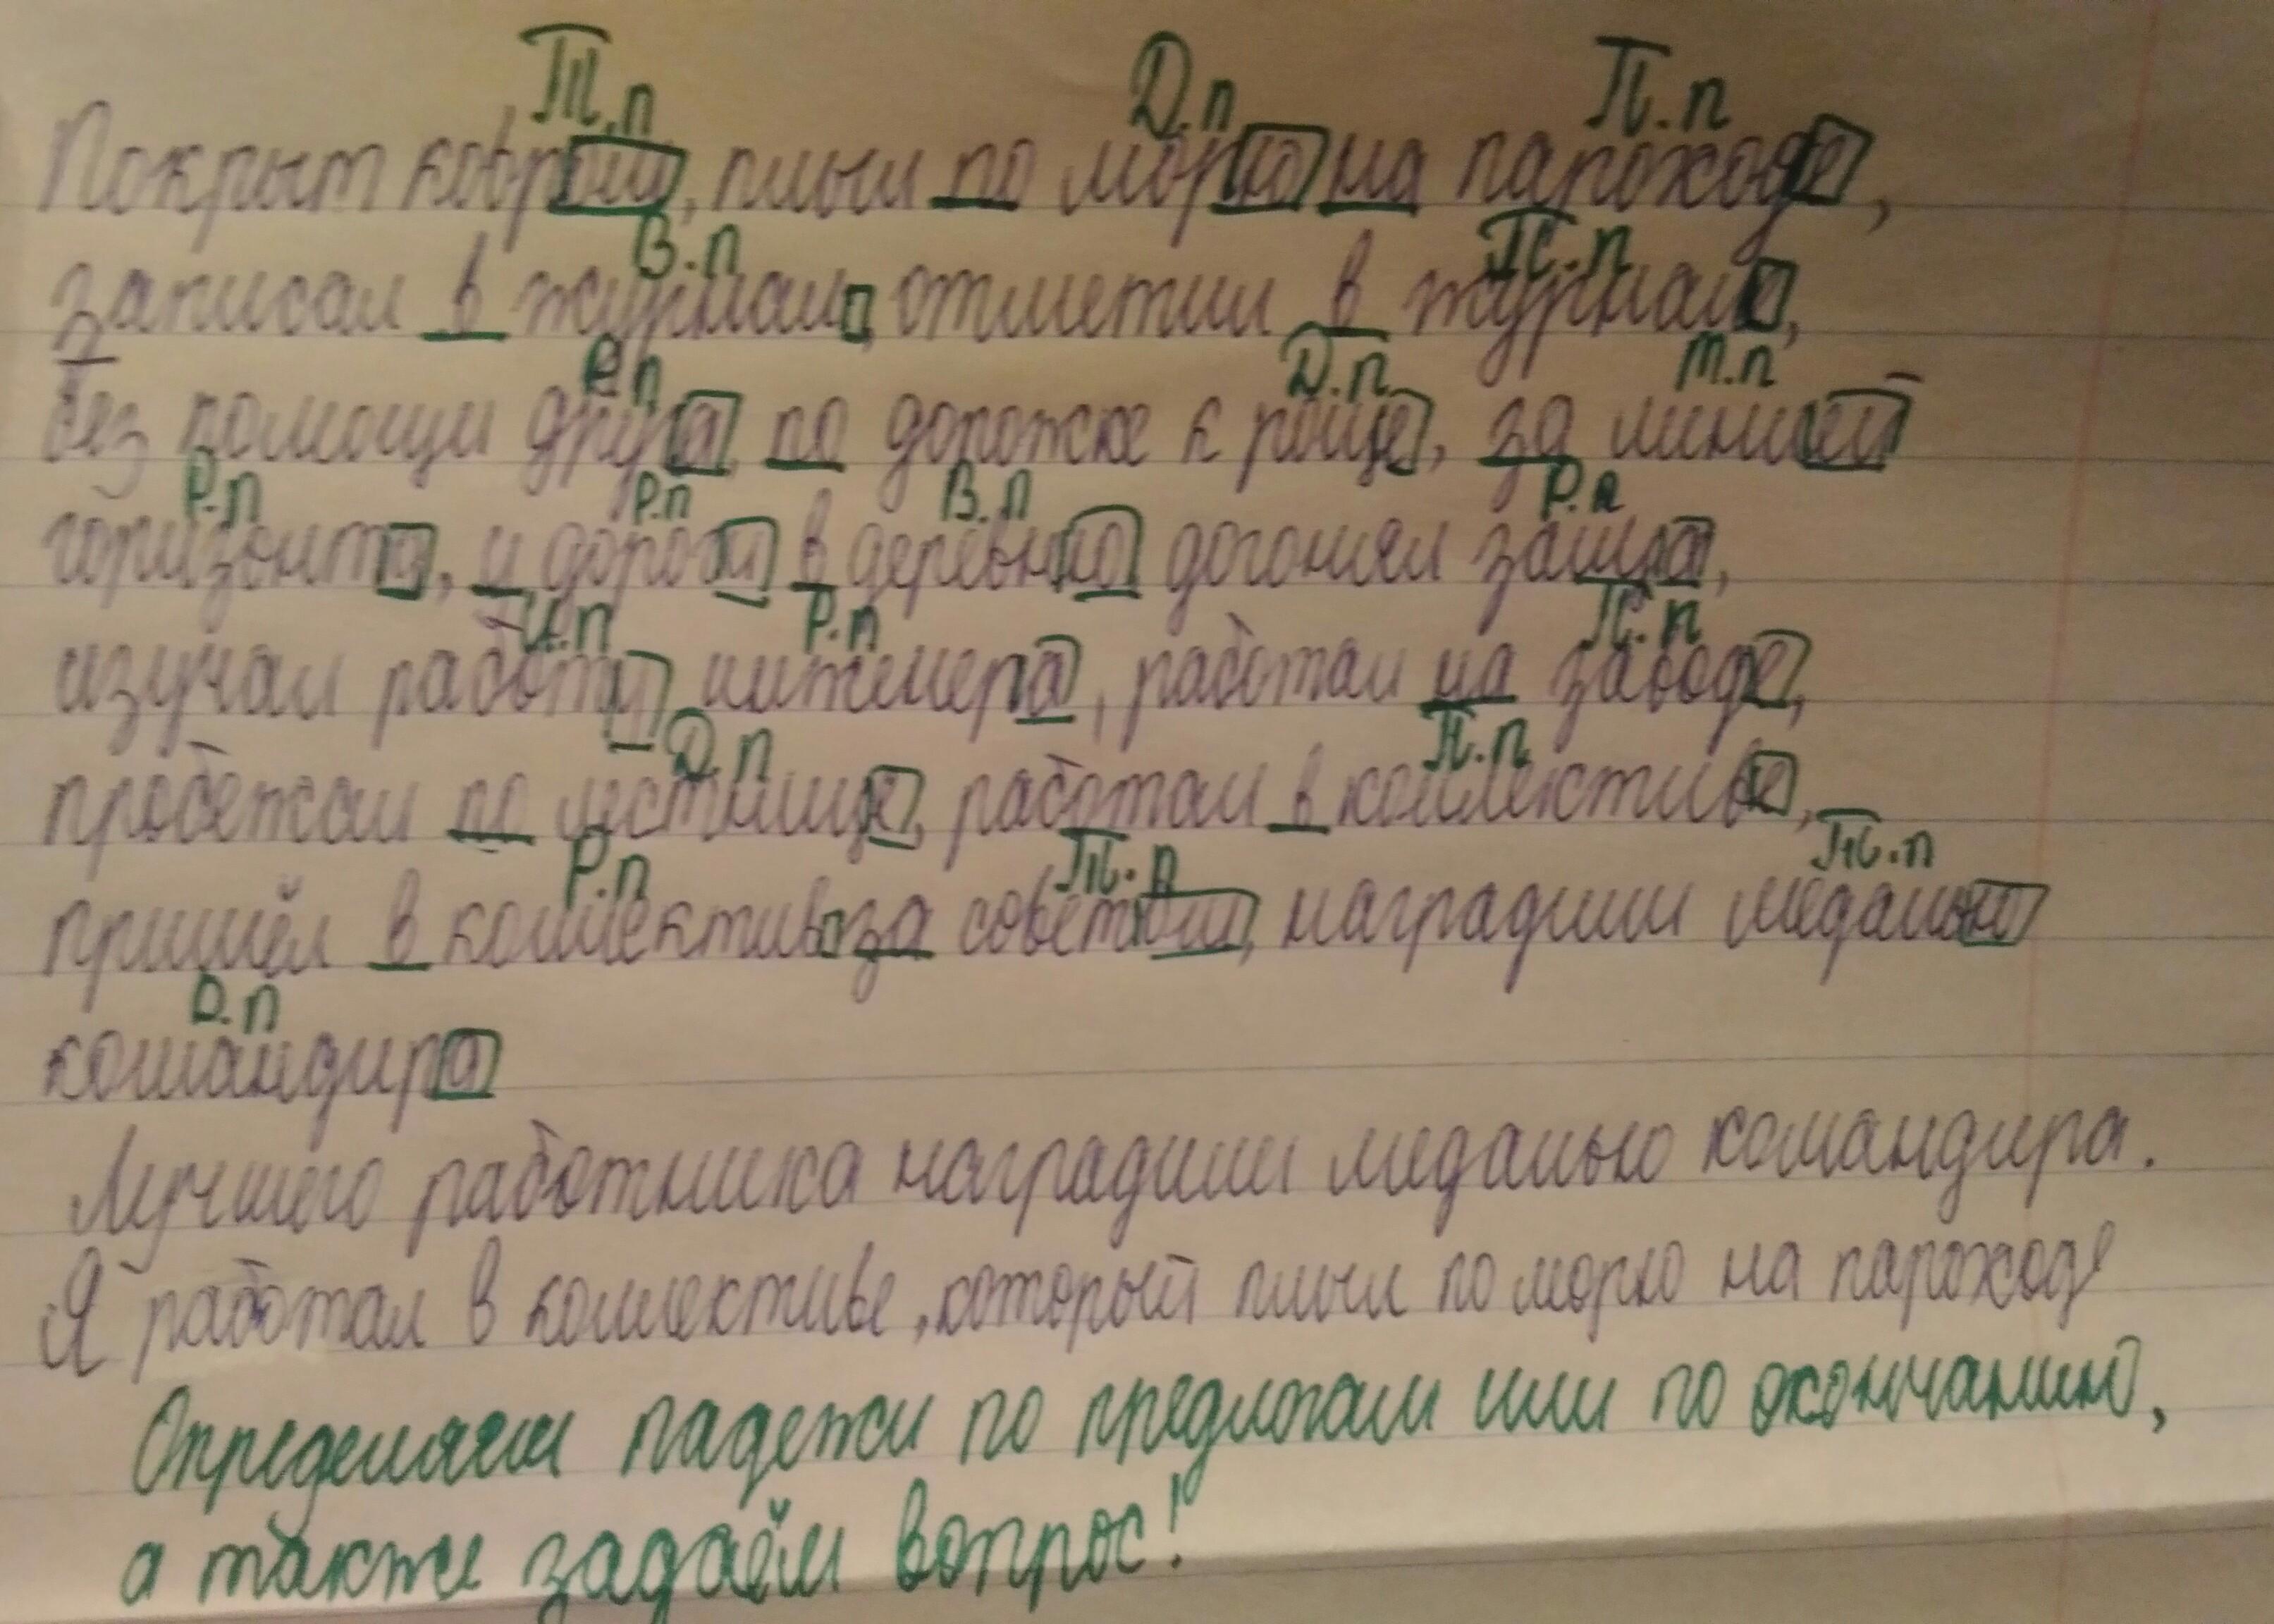 Т.п Д.п П.п
Покрыт ковром, плыл по морю на пароходе,
В.п П.п
записал в журнал, отметил в журнале,
Р.п Д.п Т.п
без помощи друга, по дорожке к роще, за линией
Р.п Р.п В.п Р.п
горизонта, у дороги в деревню догонял зайца,
И.п Р.п П.п
изучал работу инженера, работал на заводе,
Д.п П.п
пробежал по лестнице, работал в коллективе,
Р.п Т.п Т.п
пришёл в коллектив за советом, наградили медалью
В.п
командира
Лучшего работника наградили медалью командира.
Я работал в коллективе, который плыл по морю на пароходе
Определяем падежи по предлогам или по окончанию,
а также задаём вопрос!